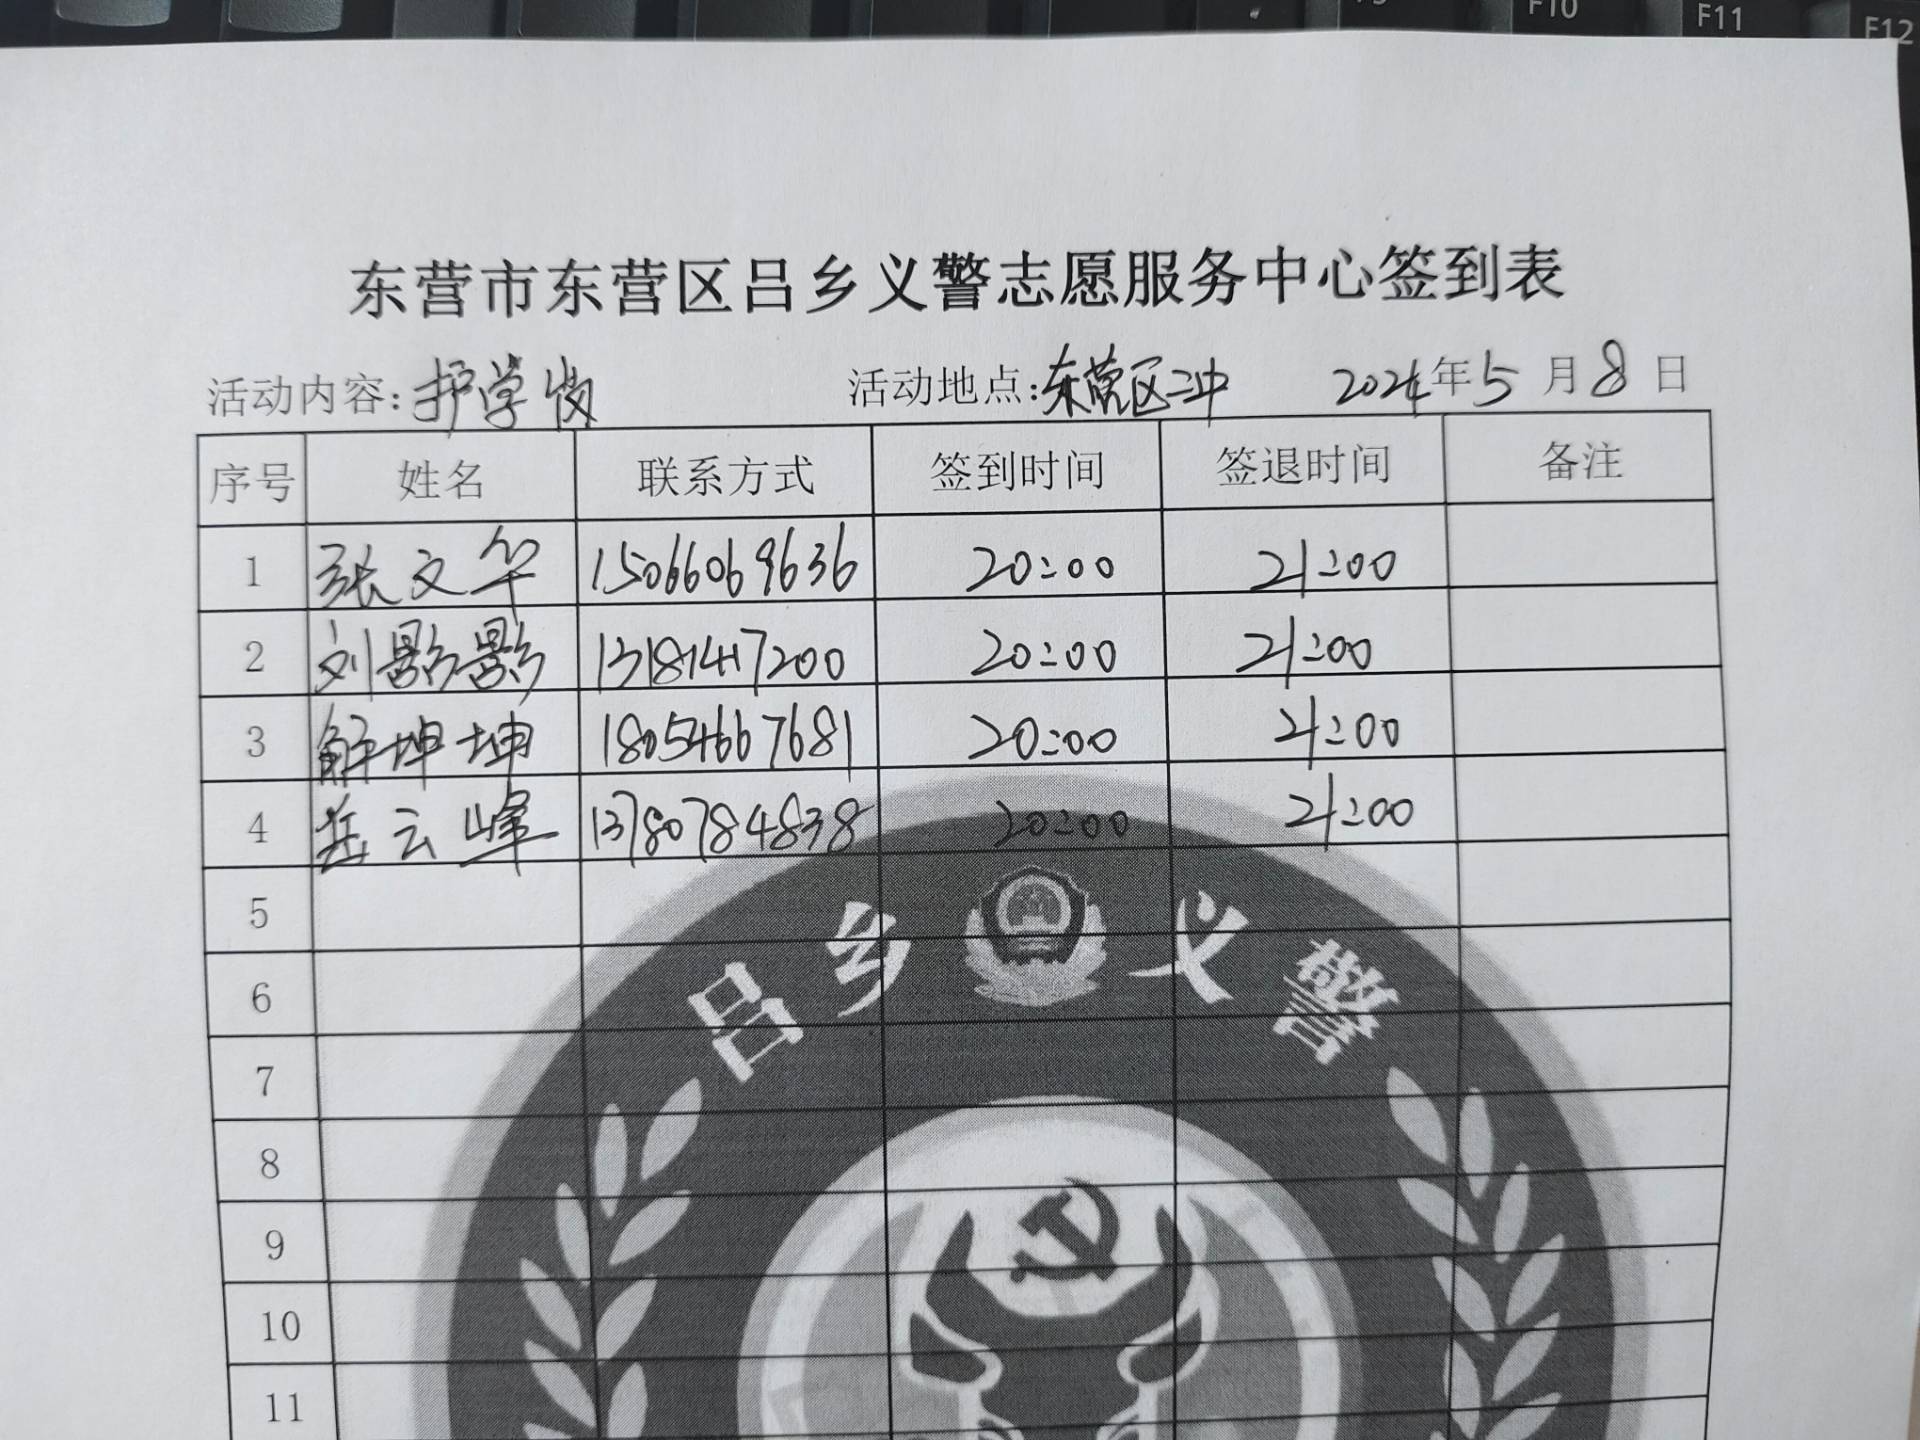 F10 F11 F12
东营市东营区吕乡义警志愿服务中心签到表
活动内容:护学岗 活动地点:东营区二中 2024年5月8日
序号 姓名 联系方式 签到时间 签退时间 备注
1 张文华 15066069636 20:00 21:00
2 刘影影 13181417200 20:00 21:00
3 解坤坤 18054667681 20:00 21:00
4 岳云峰 13780784838 20:00 21:00
5
6
7
8
9
10
11
吕乡义警